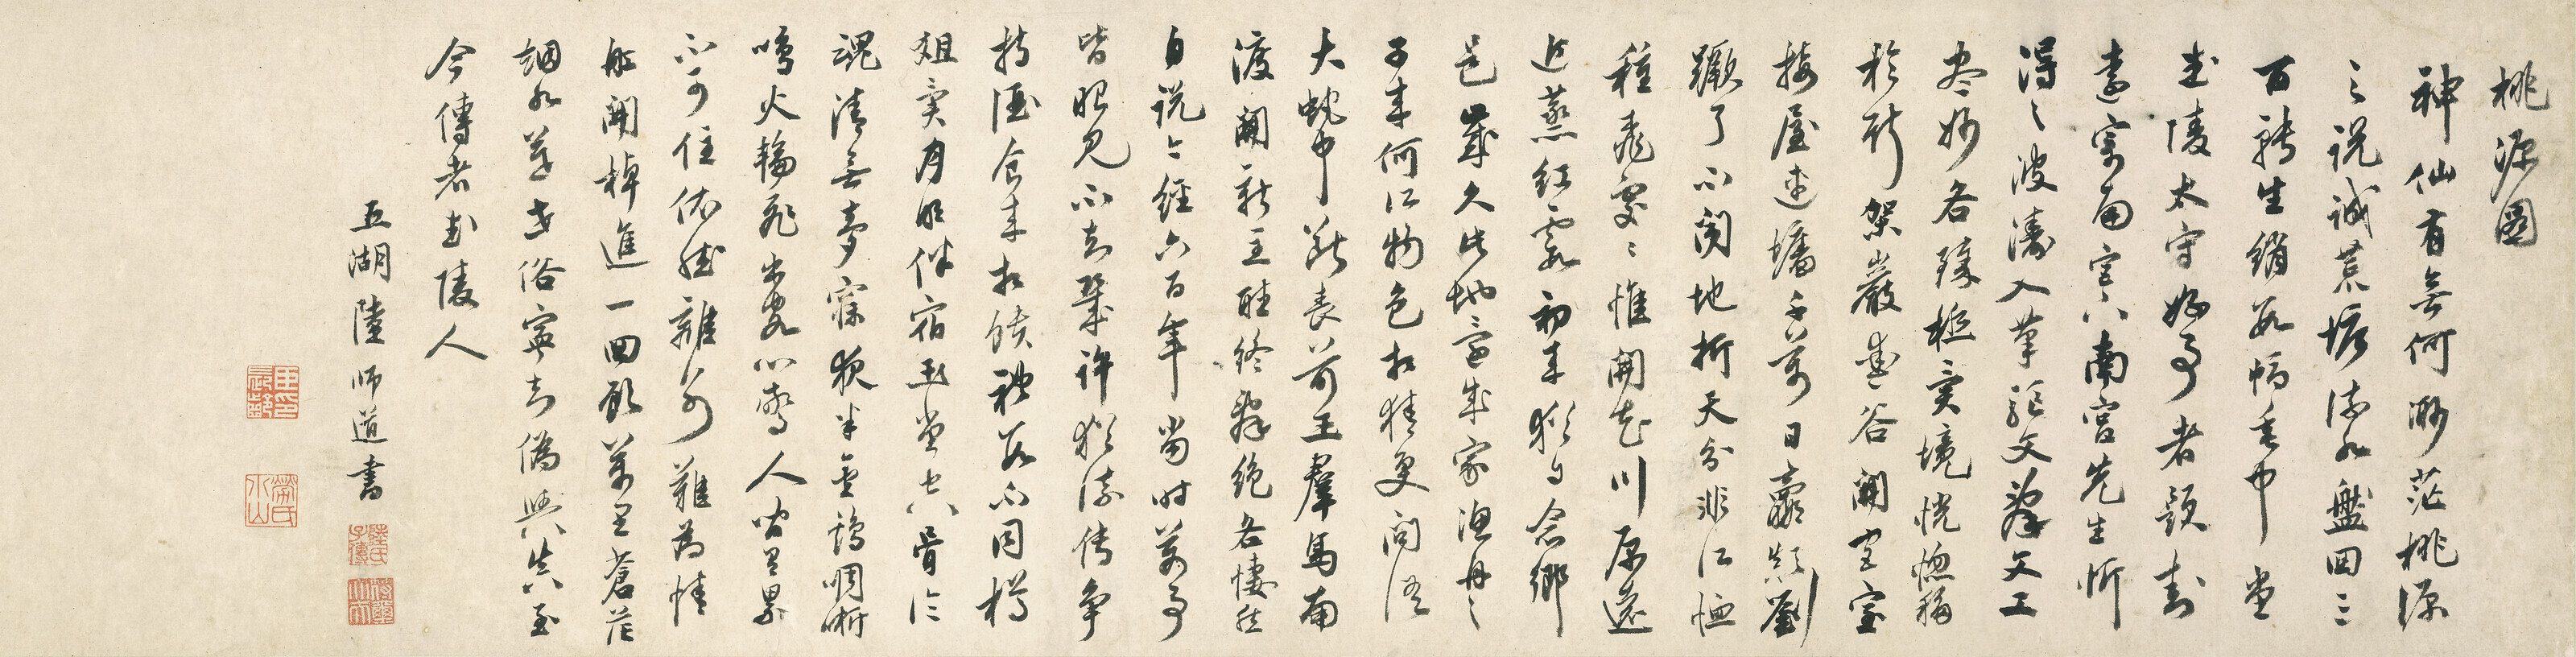 桃源圖
神仙有無何渺茫桃源
之說誠荒唐流水盤回山
百轉生綃數幅垂中堂
武陵太守好事者題封
遠寄南宮下南宮先生忻
得之波濤入筆驅文辭文工
畫妙各臻極異境恍惚移
於斯架巖鑿谷開宮室
接屋連墻千萬日嬴顛劉
蹶了不聞地拆天分非所恤
種桃處處惟開花川原遠
近蒸紅霞初來猶自念鄉
邑歲久此地還成家漁舟之
子來何所物色相猜更問語
大蛇中斷喪前王羣馬南
渡開新主聽終辭絕各悽然
自說今經六百年當時萬事
皆眼見不知幾許猶流傳爭
持酒食來相饋禮數不同樽
俎異月明伴宿玉堂空骨冷
魂清無夢寐夜半金鷄啁哳
鳴火輪飛出客心驚人間有累
不可住依然離別難為情
船開棹進一回顧萬里蒼茫
烟水暮世俗寧知偽與真至
今傳者武陵人
五湖陸師道書
陸氏子傳